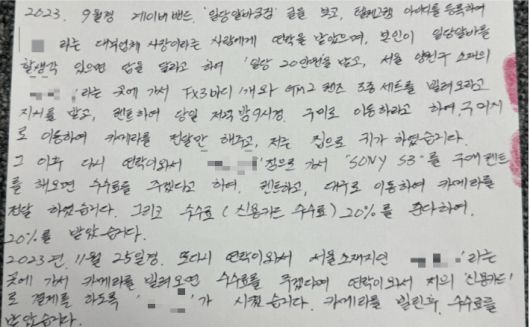 2023. 9월경 네이버밴드. '일당알바구함' 글을 보고, 텔레그램 아이디를 등록하여
라는 대여업체 사장이라는 사람에게 연락을 받았으며, 본인이 일당알바를
할생각 있으면 답을 달라고 하여 '일당 20만원을 받고, 서울 양천구 소재의
'라는 곳에 가서 FX3바디 1개와 GM2 렌즈 조종 세트를 빌려오라고
지시를 받고, 렌트하여 당일 저녁 밤9시경. 구미로 이동하라고 하여, 구미
로 이동하여 카메라를 전달만 해주고, 저는 집으로 귀가 하였습니다.
그 이후 다시 연락이와서 '점으로 가서 'SONY S3'를 렌트
를 해오면 수수료를 주겠다고 하여. 렌트하고, 대구로 이동하여 카메라를
전달 하였습니다. 그리고 수수료 (신용카드 수수료) 20%를 준다하여.
20%를 받았습니다.
2023년. 11월 25일경. 또다시 연락이와서 서울소재지인 '라는
곳에 가서 카메라를 빌려오면 수수료를 주겠다며 연락이와서 저의 '신용카드'
로 결제를 하도록 '가 시켰습니다. 카메라를 빌린후, 수수료를
받았습니다.